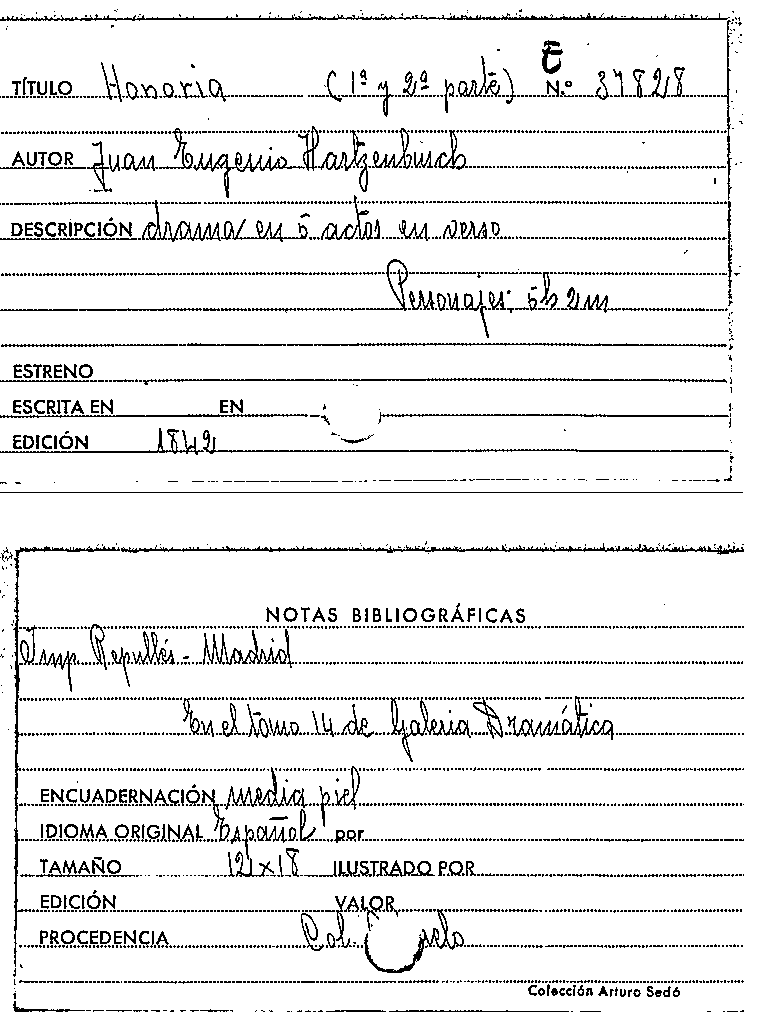 E
TÍTULO Honoria (1ª y 2ª parte) N.º 37828
AUTOR Juan Eugenio Hartzenbusch
DESCRIPCIÓN drama en 5 actos en verso
Personajes: 5h 2m
ESTRENO
ESCRITA EN EN
EDICIÓN 1842
NOTAS BIBLIOGRÁFICAS
Imp Repullés - Madrid
En el tomo 14 de Galeria Dramática
ENCUADERNACIÓN media piel
IDIOMA ORIGINAL Español por
TAMAÑO 12x18 ILUSTRADO POR
EDICIÓN VALOR
PROCEDENCIA Col.
Colección Arturo Sedó